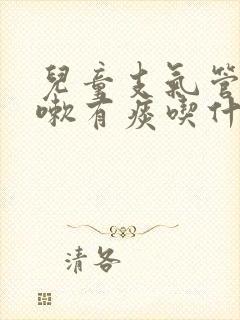 兒童支氣管
嗽有痰喫什
清各